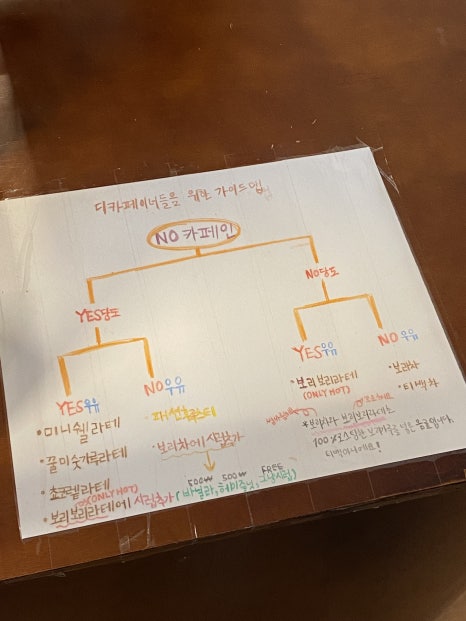 디카페이너들을 위한 가이드맵
NO 카페인
YES당도
NO당도
YES우유
NO우유
YES우유
NO 우유
• 미니쉘라떼
• 꿀미숫가루라떼
• 초코렡라떼
(ONLY HOT)
• 보리보리라떼에 시럽추가
패션후르츠티
• 보리차에 시럽추가
500₩ 500₩ FREE
(바닐라, 헤이즐넛, 그냥시럽)
• 보리보리라떼
(ONLY HOT)
• 보리차
• 티백차
* 보리차와 보리보리라떼는
100% 로스팅한 보리가루를 넣은 음료입니다.
티백아니에요!